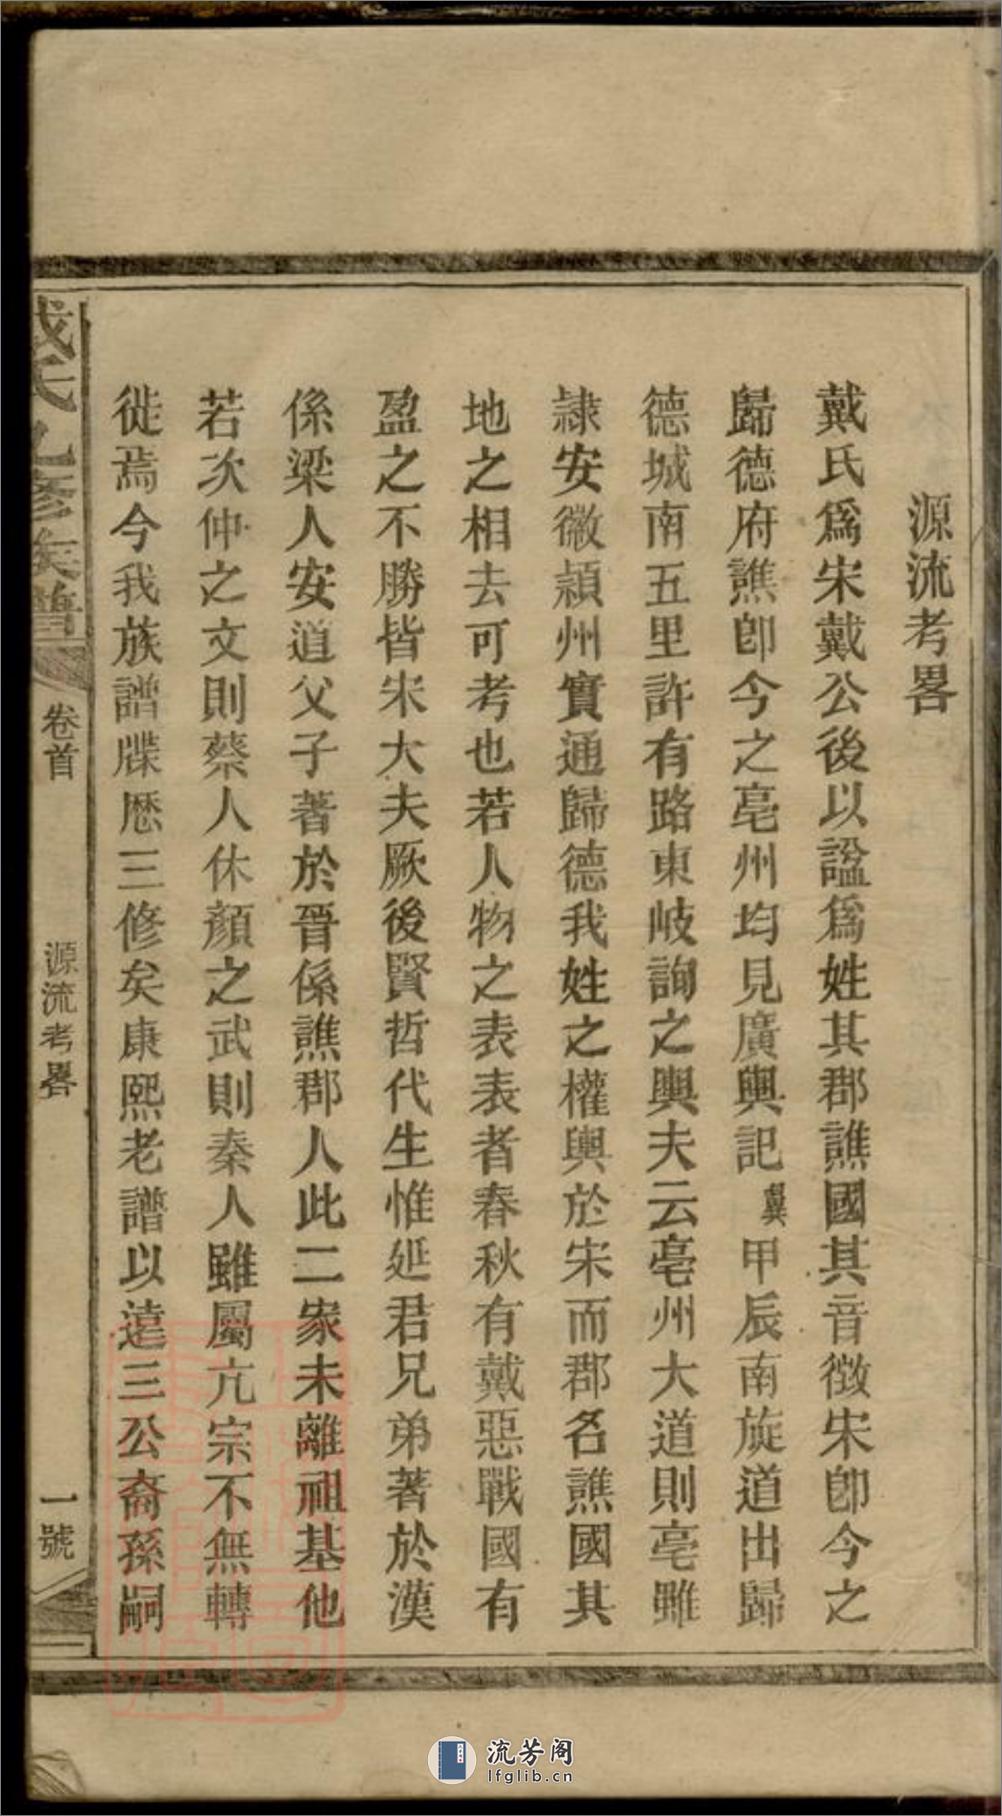 源流考畧
戴氏爲宋戴公後以諡爲姓其郡譙國其音徴宋卽今之
歸德府譙卽今之亳州均見廣輿記龔甲辰南旋道出歸
德城南五里許有路東岐詢之輿夫云亳州大道則亳雖
隸安徽潁州實通歸德我姓之權輿於宋而郡名譙國其
地之相去可考也若人物之表表者春秋有戴惡戰國有
盈之不勝皆宋大夫厥後賢哲代生惟延君兄弟著於漢
係梁人安道父子著於晉係譙郡人此二家未離祖基他
若次仲之文則蔡人休顏之武則秦人雖屬亢宗不無轉
徙焉今我族譜牒歷三修矣康熙老譜以遠三公裔孫嗣
氏 修族譜
卷首
源流考畧
一號
流芳阁
lfglib.cn